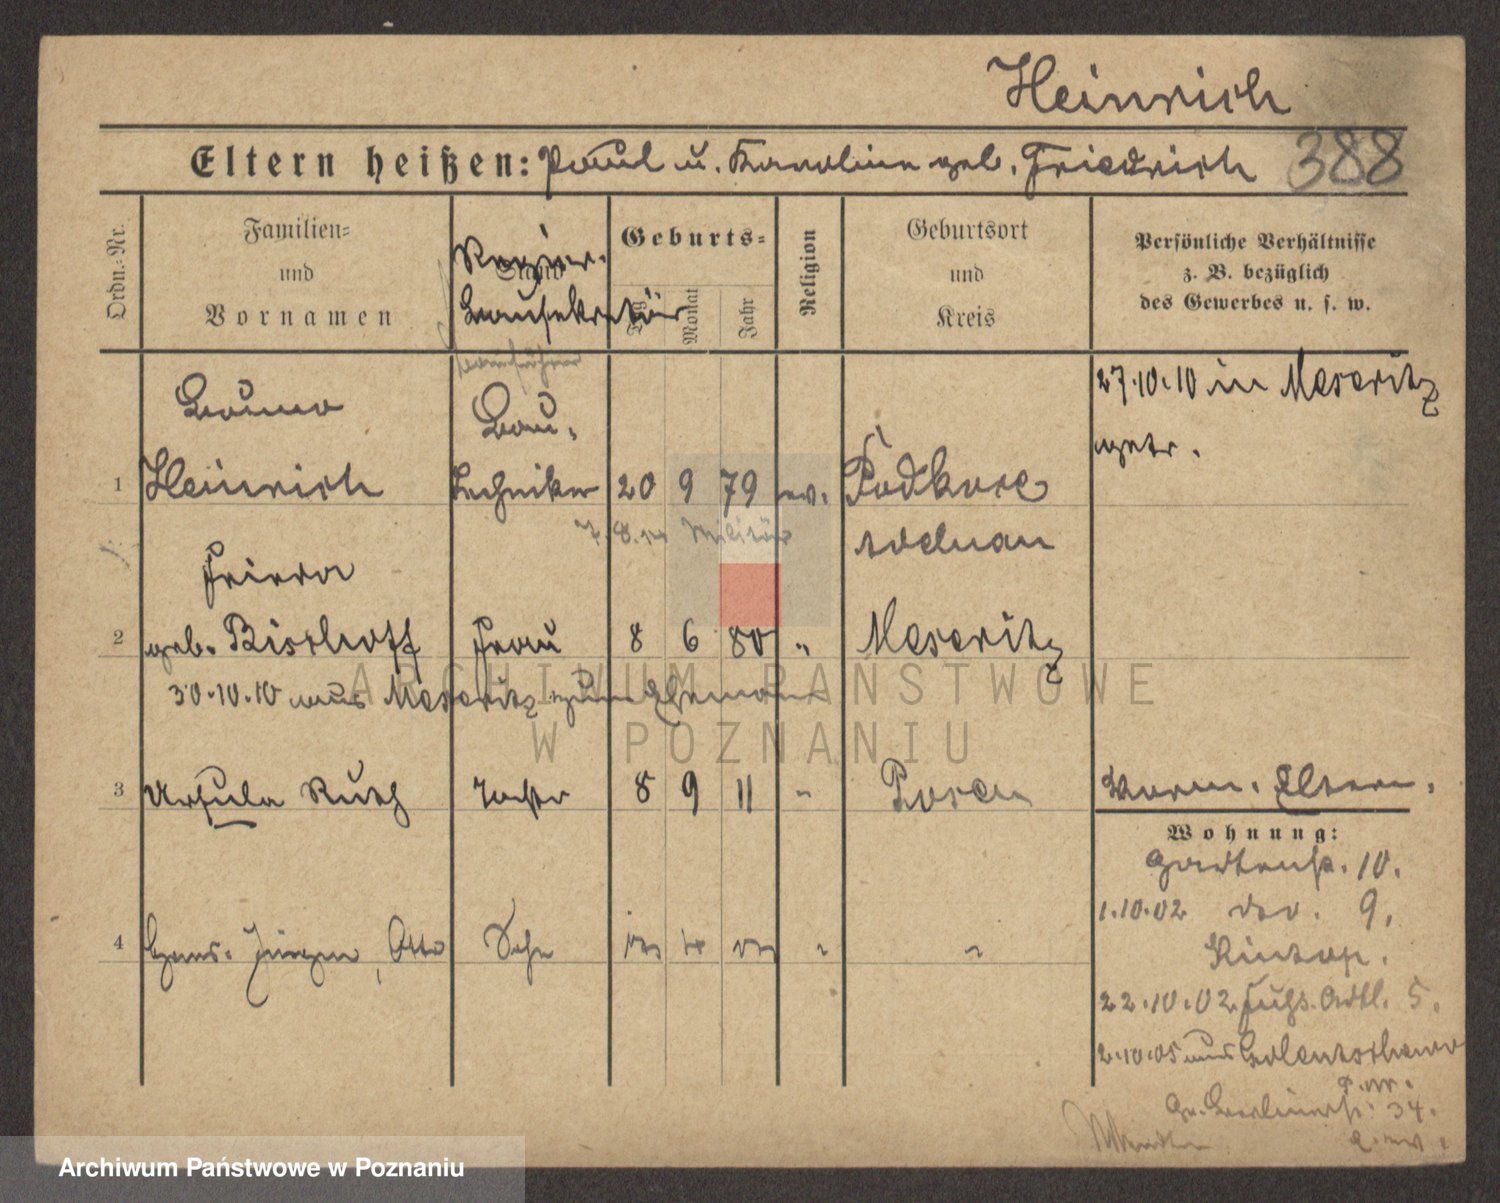 Heinrich
Eltern heißen: Paul u. Karoline geb. Friedrich 388
Ordn.=Nr.
Familien=
und
Vornamen
Stand
Regier.
Bausekretär
Geburts=
Tag
Monat
Jahr
Religion
Geburtsort
und
Kreis
Persönliche Verhältnisse
z. B. bezüglich
des Gewerbes u. s. w.
Bauführer
27.10.10 in Meseritz
getr.
Bruno
Bau-
1 Heinrich Techniker 20 9 79 ev. Podkoce
Militär
Frieda
2 geb. Bischoff Frau 8 6 80 " Meseritz
30.10.10 aus Meseritz zum Ehemann
3 Ursula Ruth Tochter 8 9 11 " Posen
Eltern.
Wohnung:
Gartenstr. 10.
1.10.02 9.
4 Hans-Jürgen, Otto Sohn " "
22.10.02 5.
2.10.05 aus
Gr. Berlinerstr. 34.
ARCHIWUM PAŃSTWOWE
W POZNANIU
Archiwum Państwowe w Poznaniu